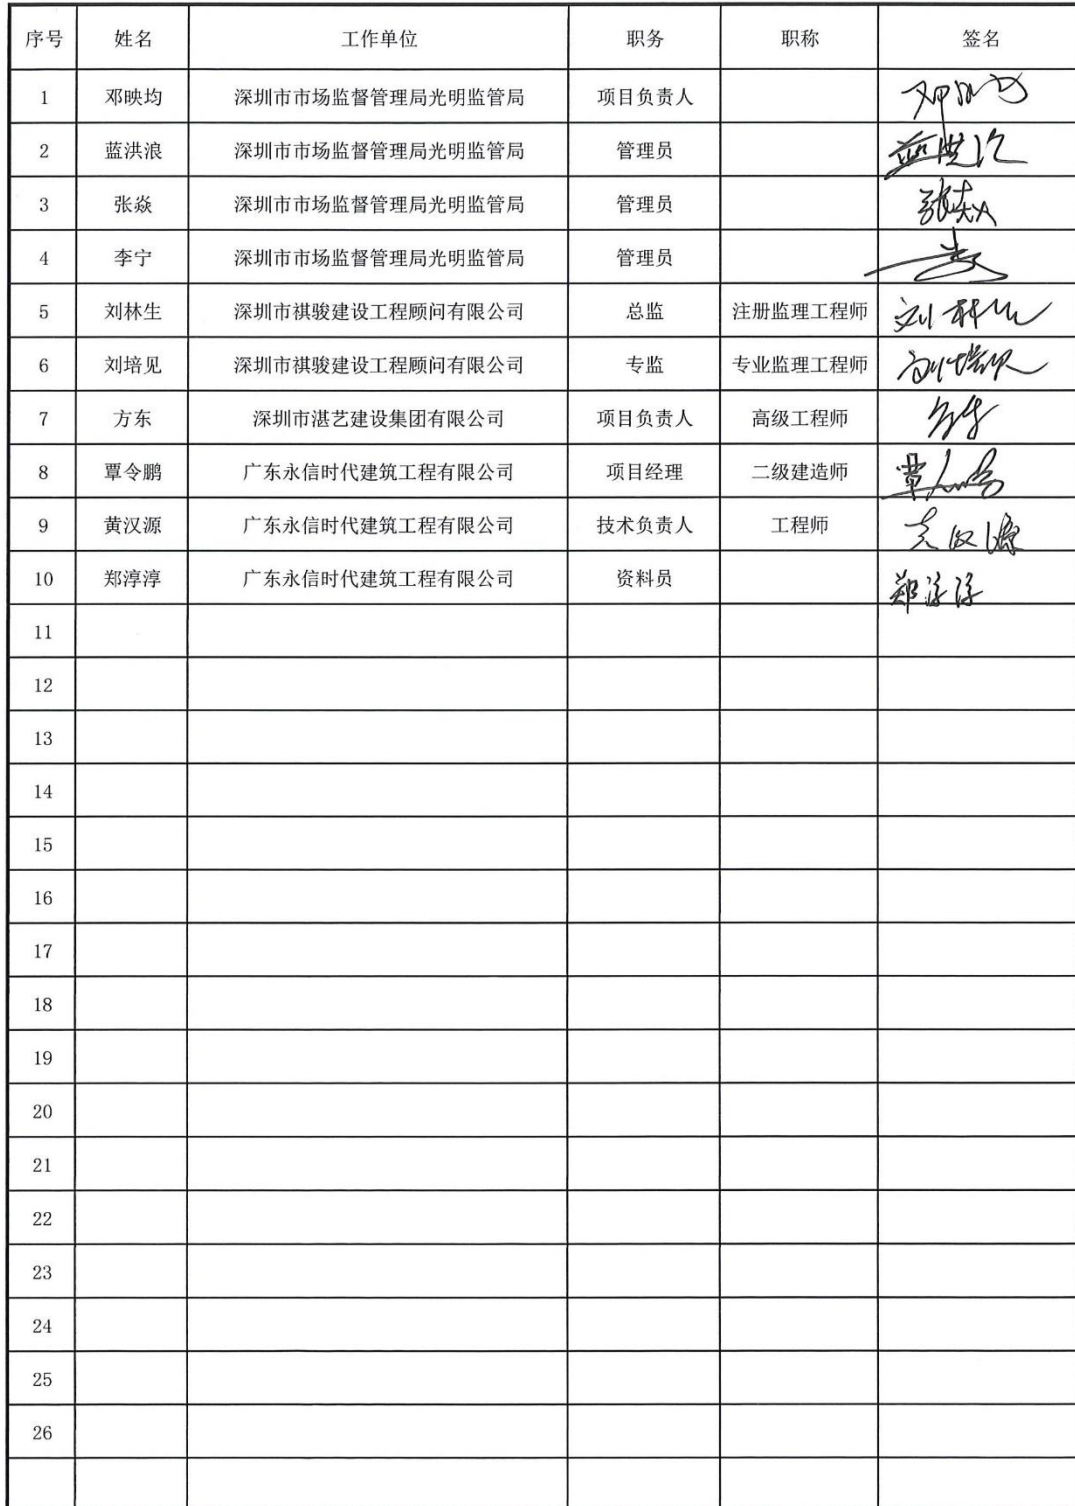 序号 姓名 工作单位 职务 职称 签名
1 邓映均 深圳市市场监督管理局光明监管局 项目负责人
2 蓝洪浪 深圳市市场监督管理局光明监管局 管理员
3 张焱 深圳市市场监督管理局光明监管局 管理员 张焱
4 李宁 深圳市市场监督管理局光明监管局 管理员
5 刘林生 深圳市祺骏建设工程顾问有限公司 总监 注册监理工程师 刘林生
6 刘培见 深圳市祺骏建设工程顾问有限公司 专监 专业监理工程师 刘培见
7 方东 深圳市湛艺建设集团有限公司 项目负责人 高级工程师
8 覃令鹏 广东永信时代建筑工程有限公司 项目经理 二级建造师
9 黄汉源 广东永信时代建筑工程有限公司 技术负责人 工程师
10 郑淳淳 广东永信时代建筑工程有限公司 资料员 郑淳淳
11
12
13
14
15
16
17
18
19
20
21
22
23
24
25
26